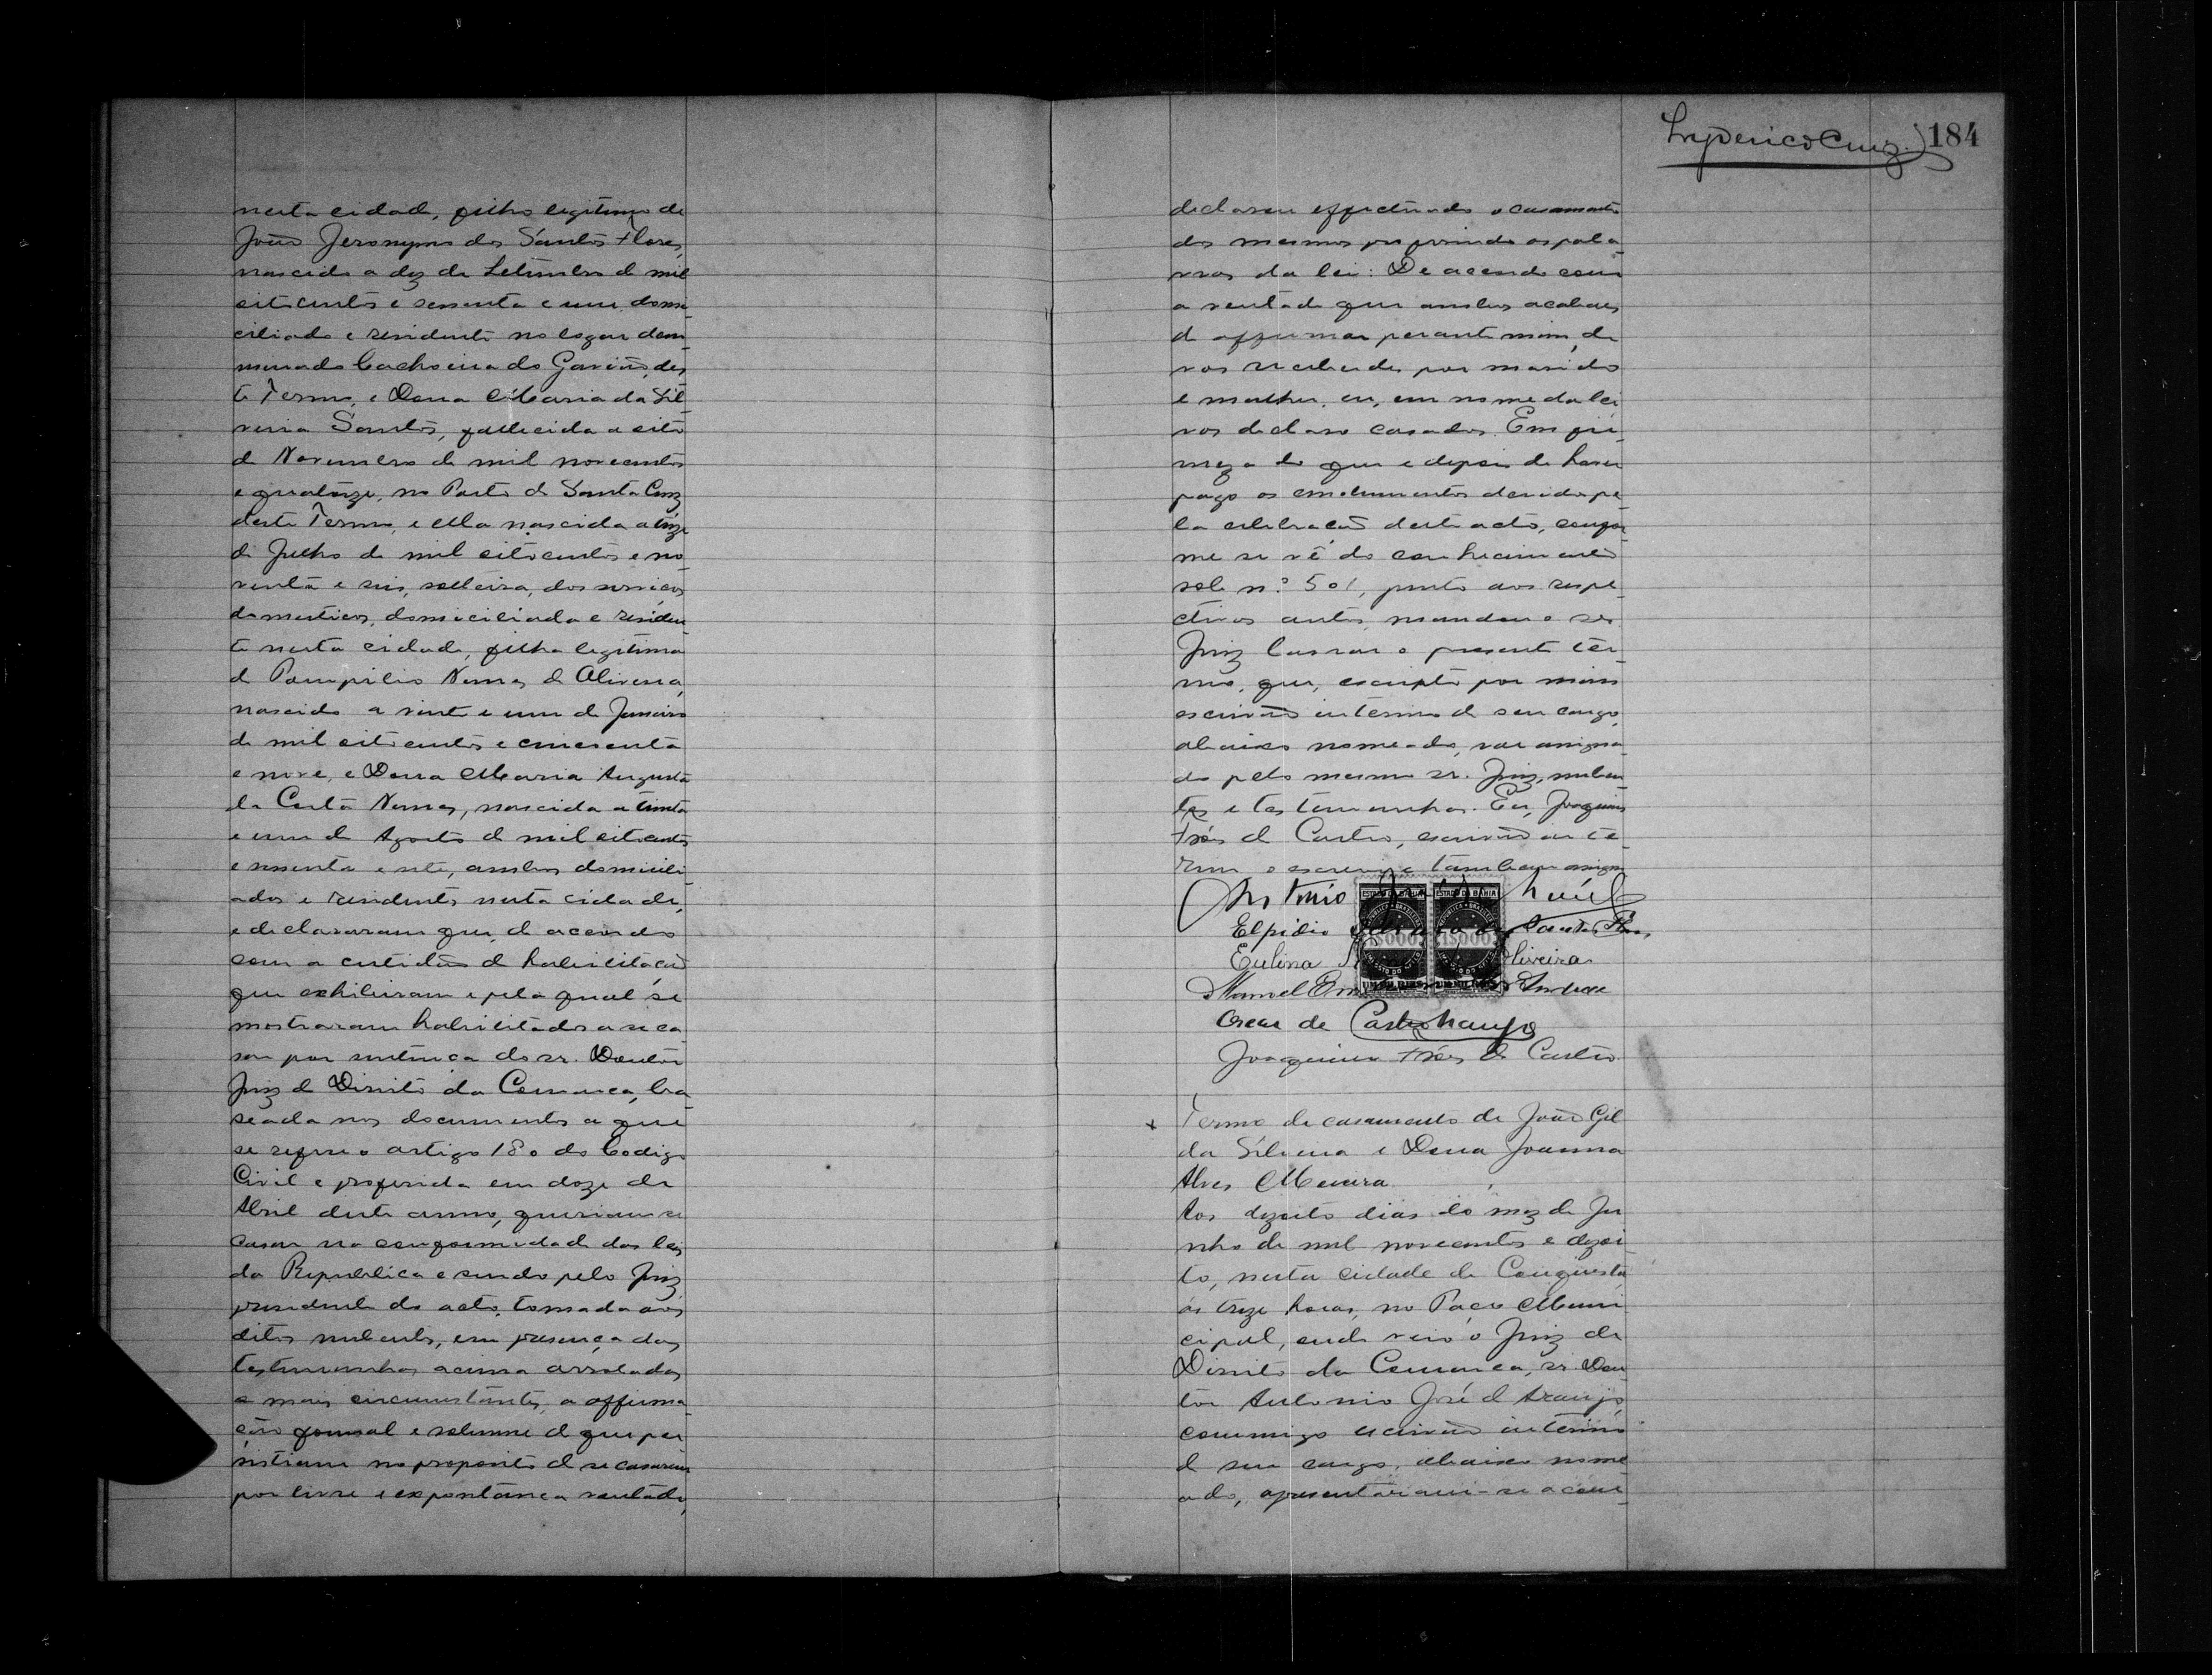 nesta cidade, filho legitimo de
João Jeronymo dos Santos Flores,
nascido a dez de Setembro de mil
oitocentos e sessenta e um, domi-
ciliado e residente no logar deno-
minado Cachoeira do Gavião, des-
te Termo, e Dona Maria da Sil-
veira Santos, fallecida a oito
de Novembro de mil novecentos
e quatorze, no Porto de Santa Cruz
deste Termo, e ella nascida a treze
de Julho de mil oitocentos e no-
venta e seis, solteira, dos serviços
domesticos, domiciliada e residen-
te nesta cidade, filha legitima
de Pompilio Nunes de Oliveira,
nascido a vinte e um de Janeiro
de mil oitocentos e cincoenta
e nove, e Dona Maria Augusta
da Costa Nunes, nascida a trinta
e um de Agosto de mil oitocentos
e sessenta e sete, ambos domicili-
ados e residentes nesta cidade,
e declararam que, de accordo
com a certidão de habilitação
que exhibiram e pela qual se
mostraram habilitados a se ca-
sar por sentença do sr. Doutor
Juiz de Direito da Comarca, ba-
seada nos documentos a que
se refere o artigo 180 do Codigo
Civil e proferida em doze de
Abril deste anno, queriam se
casar na conformidade das leis
da Republica e sendo pelo Juiz
presidente do acto, tomada aos
ditos nubentes, em presença das
testemunhas acima arroladas
e mais circumstantes, a affirma-
ção formal e solemne de que per-
sistiam no proposito de se casarem
por livre e espontanea vontade,
Lyderico Cruz. 184
declarou effectuado o casamento
dos mesmos proferindo as pala-
vras da lei: De accordo com
a vontade que ambos acabaes
de affirmar perante mim, de
vos receberdes por marido
e mulher, eu, em nome da lei
vos declaro casados. Em fir-
meza do que e depois de haver
pago os emolumentos devidos pe-
la celebração deste acto, confor-
me se vê do conhecimento
sob nº 501, junto aos respe-
ctivos autos, mandou o sr.
Juiz lavrar o presente ter-
mo, que, escripto por mim
escrivão interino de seu cargo,
abaixo nomeado, vae assigna-
do pelo mesmo sr. Juiz, nuben-
tes e testemunhas. Eu, Joaquim
Fróes de Castro, escrivão inte-
rino o escrevi e tambem assigno
Antonio José de Araújo
Elpidio dos Santos Flores
Eulina Oliveira
Manoel Andrade
Oscar de Castro Araujo
Joaquim Fróes de Castro
Termo de casamento de João Gil
da Silveira e Dona Joanna
Alves Meira.
Aos dezoito dias do mez de Ju-
nho de mil novecentos e dezoi-
to, nesta cidade de Conquista,
ás treze horas, no Paço Muni-
cipal, onde veio o Juiz de
Direito da Comarca, sr. Dou-
tor Antonio José de Araujo,
commigo escrivão interino
de seu cargo, abaixo nome-
ado, apresentaram-se a com-
ESTADO DA BAHIA
1$000
UM MIL RÉIS
ESTADO DA BAHIA
1$000
UM MIL RÉIS